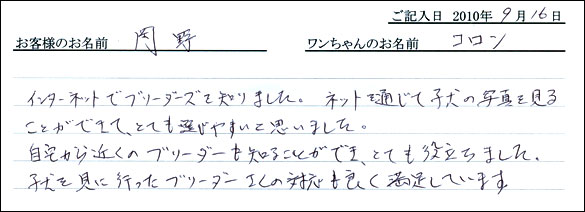 ご記入日 2010年 9月 16日
お客様のお名前 岡野 ワンちゃんのお名前 コロン
インターネットでブリーダーズを知りました。ネットを通じて子犬の写真を見る
ことができて、とても選びやすいと思いました。
自宅から近くのブリーダーも知ることができ、とても役立ちました。
子犬を見に行ったブリーダーさんの対応も良く満足しています